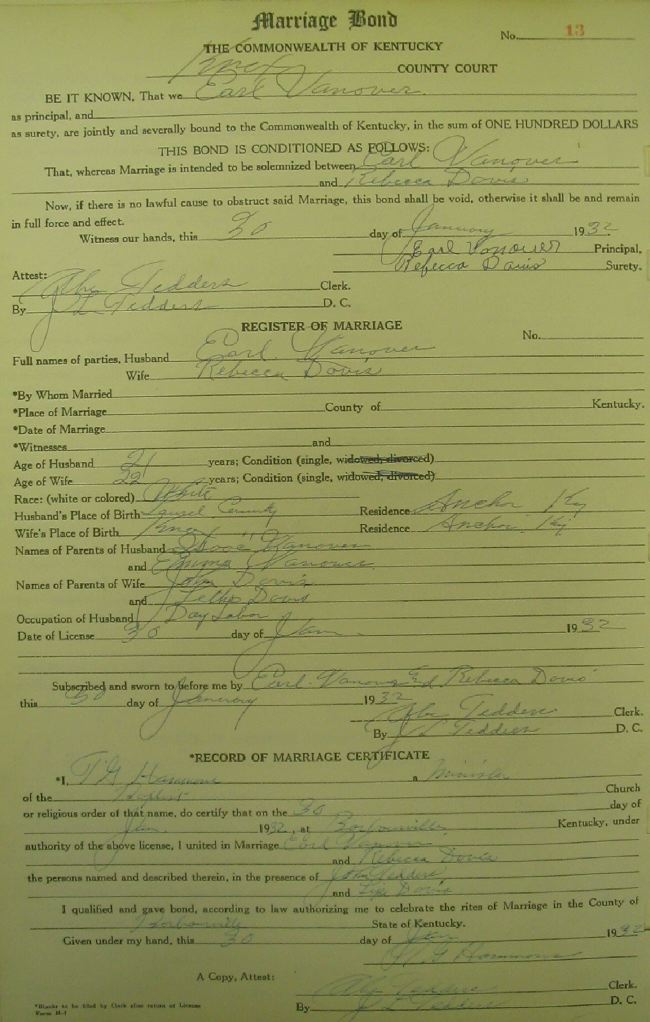 Marriage Bond
No. 13
THE COMMONWEALTH OF KENTUCKY
Knox COUNTY COURT
BE IT KNOWN, That we Earl Vanover.
as principal, and
as surety, are jointly and severally bound to the Commonwealth of Kentucky, in the sum of ONE HUNDRED DOLLARS
THIS BOND IS CONDITIONED AS FOLLOWS:
That, whereas Marriage is intended to be solemnized between Earl Vanover
and Rebecca Davis
Now, if there is no lawful cause to obstruct said Marriage, this bond shall be void, otherwise it shall be and remain
in full force and effect.
Witness our hands, this 30 day of January 1932
Earl Vanover Principal,
Rebecca Davis Surety.
Attest:
Abe Tedders Clerk.
By J L Tedders D. C.
REGISTER OF MARRIAGE
No.
Full names of parties, Husband Earl Vanover
Wife Rebecca Davis
*By Whom Married
*Place of Marriage County of Kentucky.
*Date of Marriage
*Witnesses and
Age of Husband 21 years; Condition (single, widowed, divorced)
Age of Wife 22 years; Condition (single, widowed, divorced)
Race: (white or colored) White
Husband's Place of Birth Laurel County Residence Anchor Ky
Wife's Place of Birth Knox Residence Anchor Ky
Names of Parents of Husband Vanover
and Emma Vanover
Names of Parents of Wife John Davis
and Davis
Occupation of Husband Day Labor
Date of License 30 day of Jan 1932
Subscribed and sworn to before me by Earl Vanover and Rebecca Davis
this 30 day of January 1932
Abe Tedders Clerk.
By J L Tedders D. C.
*RECORD OF MARRIAGE CERTIFICATE
*I, Hammons a Minister
of the Baptist Church
or religious order of that name, do certify that on the 30 day of
Jan. 1932, at Kentucky, under
authority of the above license, I united in Marriage Earl Vanover
and Rebecca Davis
the persons named and described therein, in the presence of John Tedders
and Davis
I qualified and gave bond, according to law authorizing me to celebrate the rites of Marriage in the County of
State of Kentucky.
Given under my hand, this 30 day of Jan 1932
Hammons
A Copy, Attest:
Abe Tedders Clerk.
By J L Tedders D. C.
*Blanks to be filled by Clerk after return of License